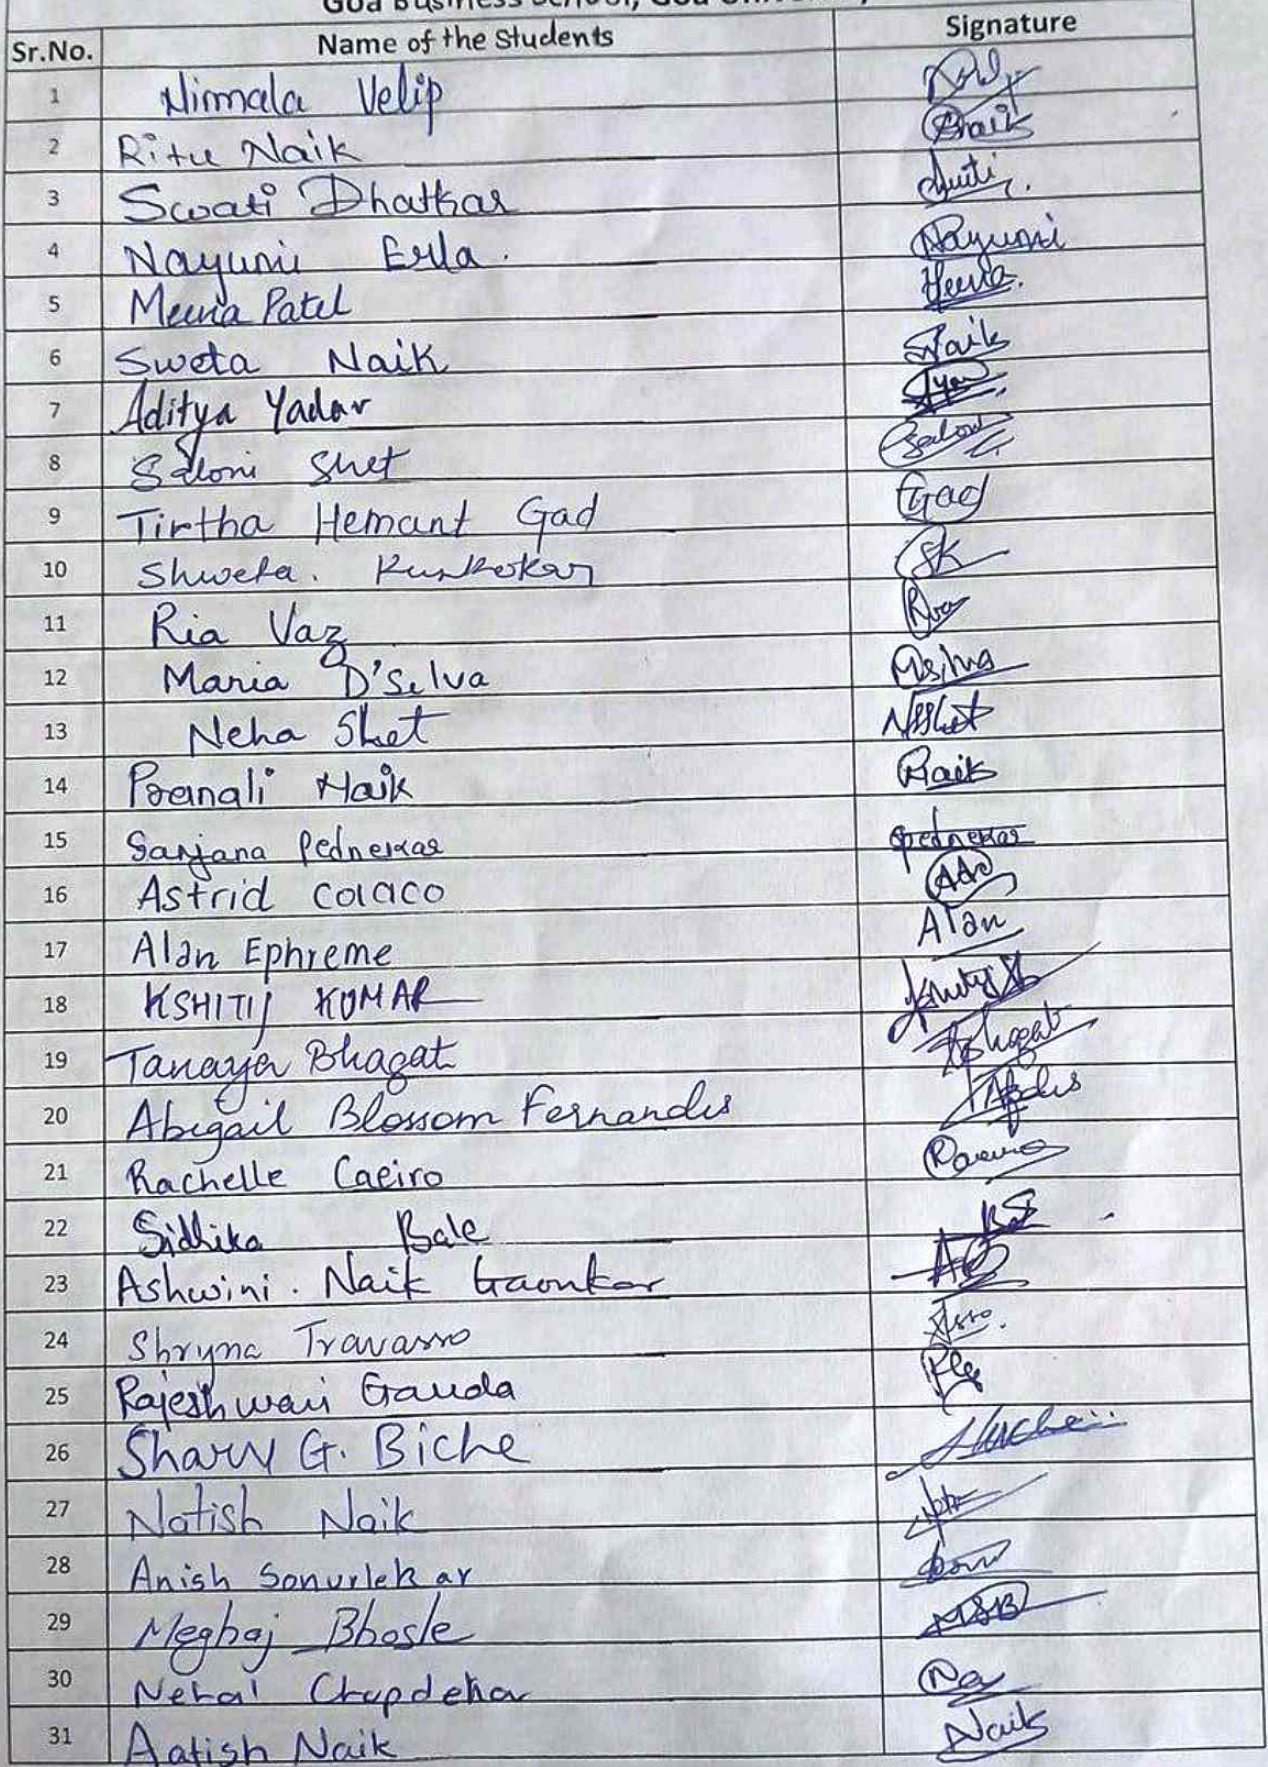 Goa Business School, Goa University
Sr.No. Name of the Students Signature
1 Nirmala Velip
2 Ritu Naik Bnaik
3 Swati Dhatkar
4 Nayumi Erla. Nayumi
5 Meena Patel
6 Sweta Naik SNaik
7 Aditya Yadav
8 Saloni Shet
9 Tirtha Hemant Gad Gad
10 Shweta. Kunkekar SK
11 Ria Vaz
12 Maria D'Silva
13 Neha Shet NSShet
14 Pranali Naik
15 Sanjana Pednekar Spednekar
16 Astrid Colaco
17 Alan Ephreme Alan
18 KSHITIJ KUMAR
19 Tanaya Bhagat TBhagat
20 Abigail Blossom Fernandes
21 Rachelle Caeiro
22 Sidhika Bale
23 Ashwini. Naik Gaonkar
24 Shryna Travasso
25 Rajeshwari Gauda
26 Sharv G. Biche
27 Natish Naik
28 Anish Sonurlekar
29 Meghaj Bhosle MSB
30 Nehal
31 Aatish Naik Naik